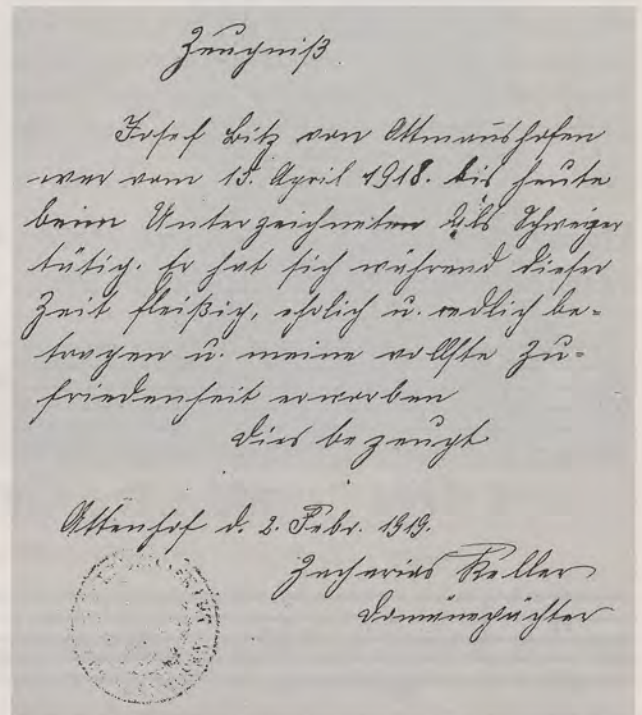 Zeugniß
Josef Bitz von Ottmanshofen
war vom 15. April 1918. bis heute
beim Unterzeichneten als Schweizer
tätig. Er hat sich während dieser
Zeit fleißig, ehrlich u. redlich be=
tragen u. meine vollste Zu=
friedenheit erworben
Dies bezeugt
Attenhof d. 2. Febr. 1919.
Zacharias Keller
Domänepächter